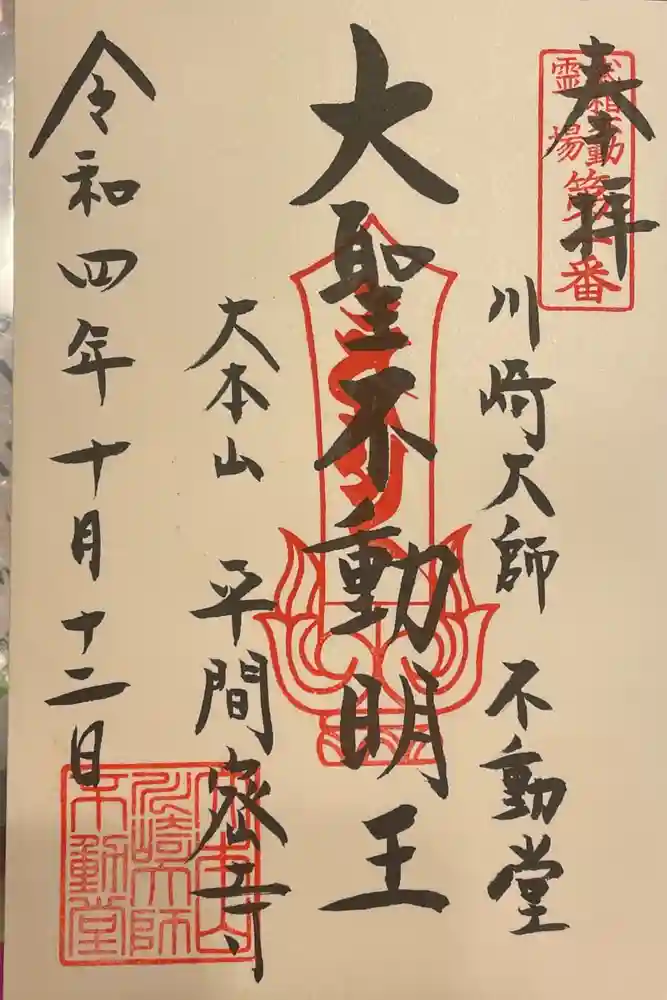 奉拝
霊場
第一番
川﨑大師 不動堂
大聖不動明王
大本山 平間寺
令和四年十月十二日
大本山
川崎大師
不動堂